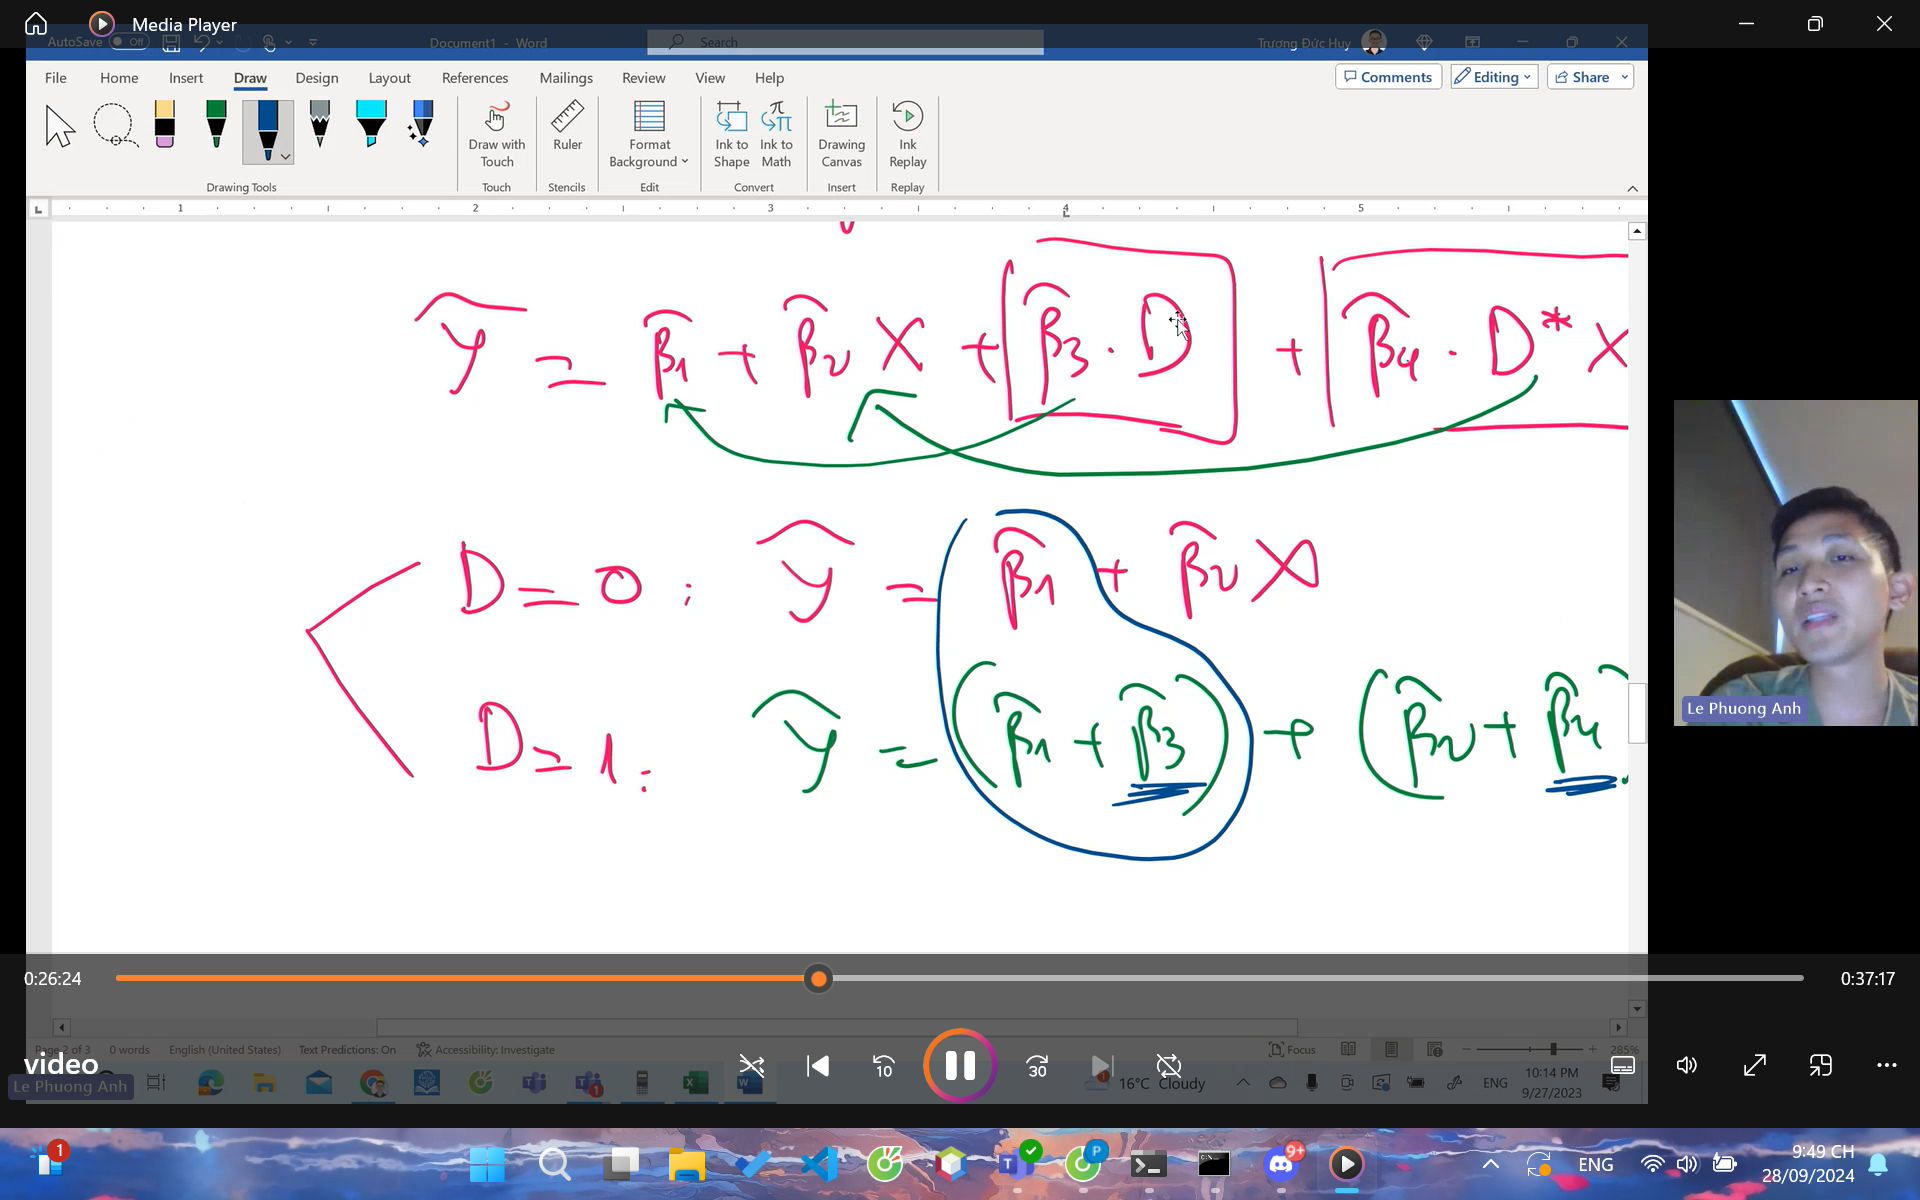 Media Player
AutoSave Off Document1 - Word Search Trương Đức Huy
File Home Insert Draw Design Layout References Mailings Review View Help Comments Editing Share
Draw with Touch Ruler Format Background Ink to Shape Ink to Math Drawing Canvas Ink Replay
Drawing Tools Touch Stencils Edit Convert Insert Replay
1 2 3 4 5
Ŷ = β̂1 + β̂2 X + β̂3 . D + β̂4 . D * X
D = 0 : Ŷ = β̂1 + β̂2 X
D = 1 : Ŷ = (β̂1 + β̂3) + (β̂2 + β̂4
Le Phuong Anh
0:26:24 0:37:17
Page 2 of 3 0 words English (United States) Text Predictions: On Accessibility: Investigate Focus 285%
video
Le Phuong Anh
10 30
16°C Cloudy ENG 10:14 PM
9/27/2023
1 9+ ENG 9:49 CH
28/09/2024